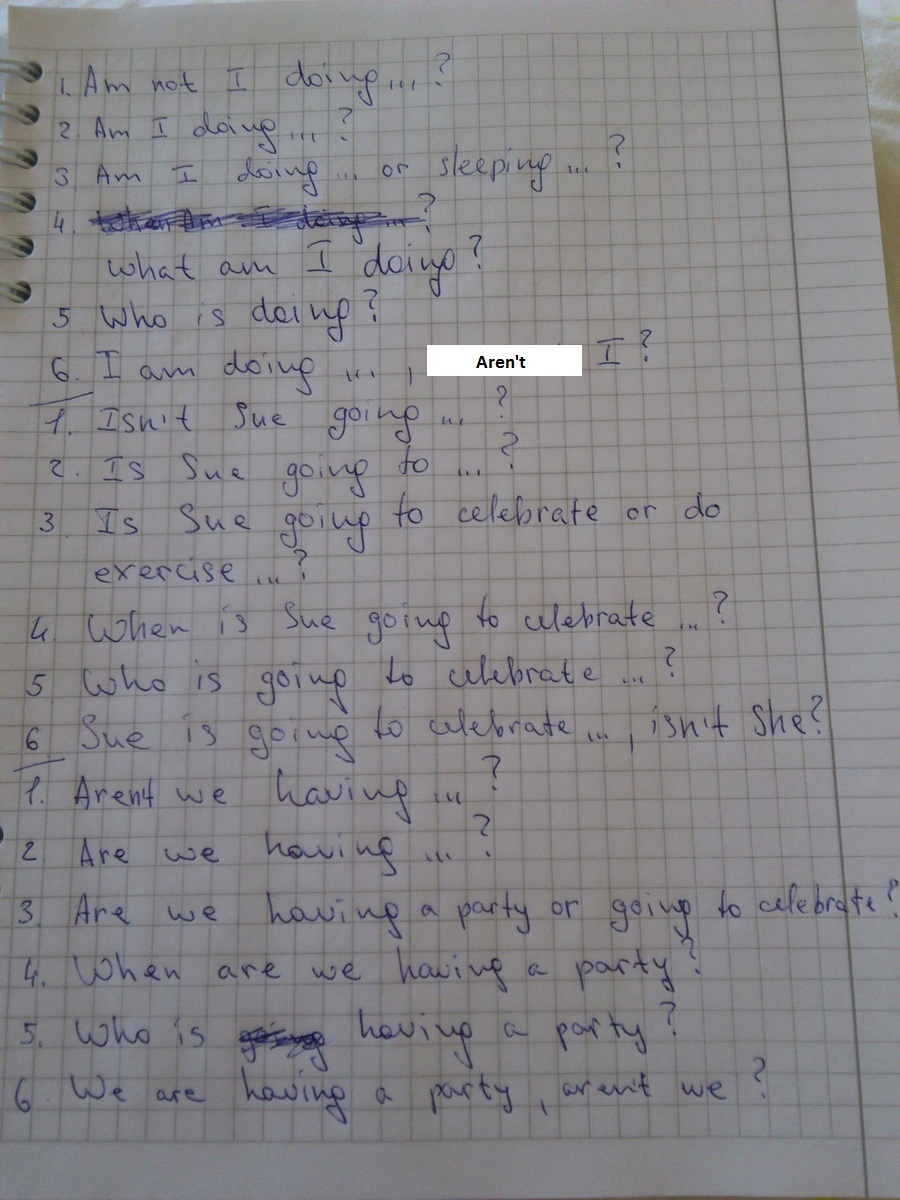 1. Am not I doing ... ?
2. Am I doing ... ?
3 Am I doing ... or sleeping ... ?
4. When Am I doing ... ?
What am I doing?
5 Who is doing?
6. I am doing ... , Aren't I ?
1. Isn't Sue going ... ?
2. Is Sue going to ... ?
3. Is Sue going to celebrate or do
exercise ... ?
4. When is Sue going to celebrate ... ?
5 Who is going to celebrate ... ?
6 Sue is going to celebrate ... , isn't She?
1. Aren't we having ... ?
2. Are we having ... ?
3. Are we having a party or going to celebrate?
4. When are we having a party?
5. Who is going having a party?
6 We are having a party , aren't we ?